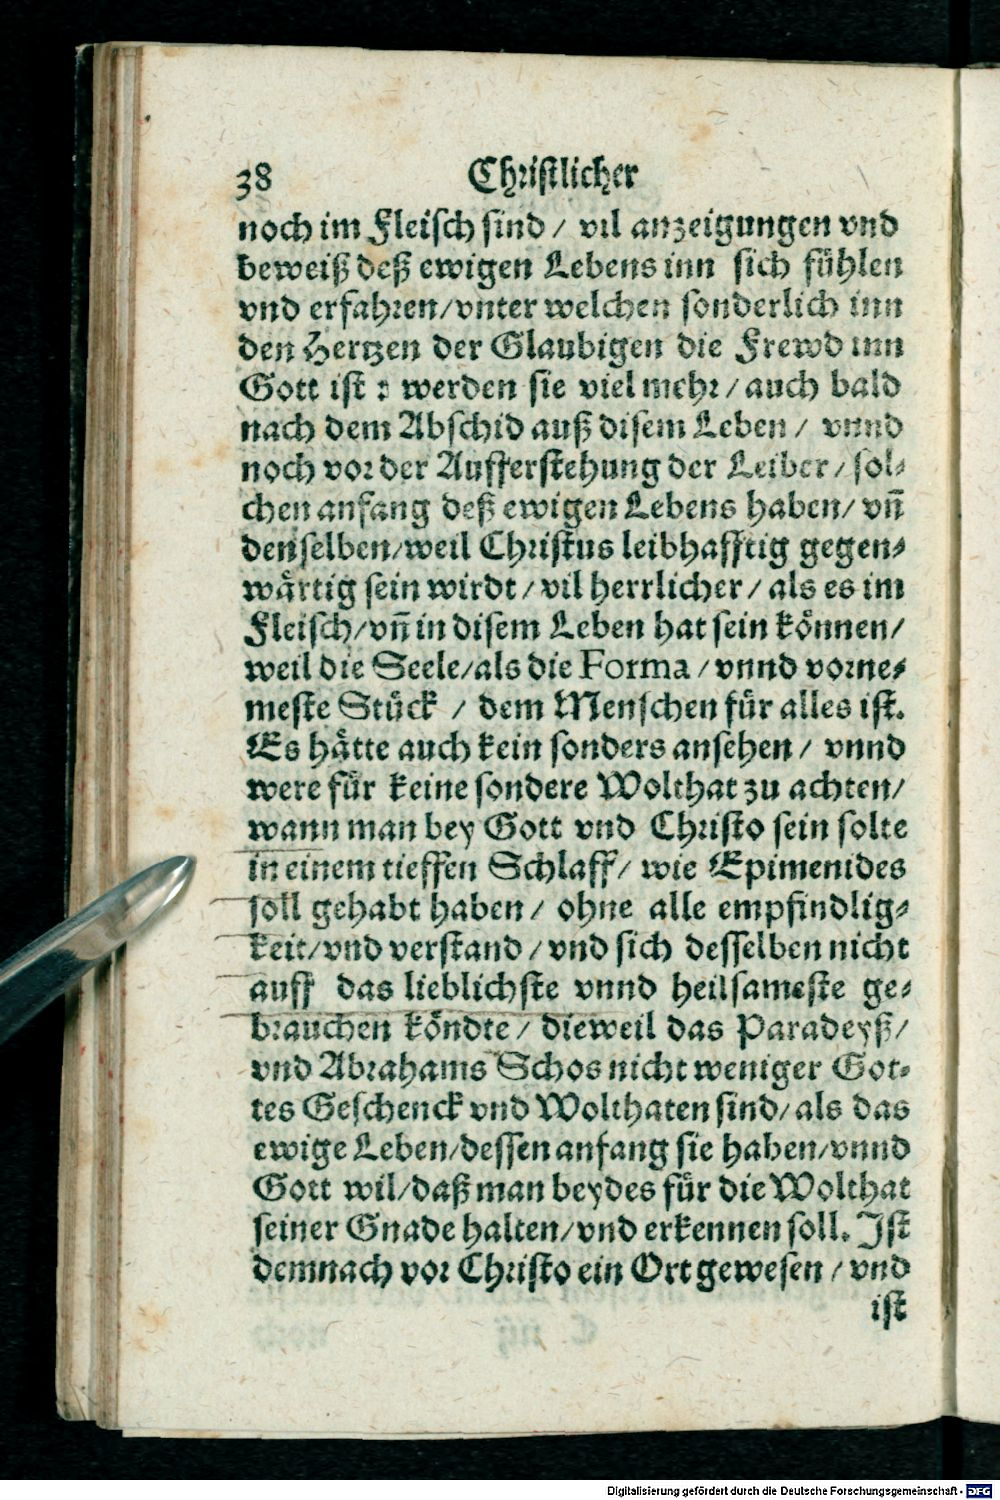 38 Christlicher
noch im Fleisch sind / vil anzeigungen vnd
beweiß deß ewigen Lebens inn sich fühlen
vnd erfahren/vnter welchen sonderlich inn
den Hertzen der Glaubigen die Frewd inn
Gott ist : werden sie viel mehr / auch bald
nach dem Abschid auß disem Leben / vnnd
noch vor der Aufferstehung der Leiber / sol-
chen anfang deß ewigen Lebens haben/ vñ
denselben/weil Christus leibhafftig gegen-
wårtig sein wirdt / vil herrlicher / als es im
Fleisch/vñ in disem Leben hat sein kônnen/
weil die Seele/als die Forma / vnnd vorne-
meste Stück / dem Menschen für alles ist.
Es håtte auch kein sonders ansehen / vnnd
were für keine sondere Wolthat zu achten/
wann man bey Gott vnd Christo sein solte
in einem tieffen Schlaff/ wie Epimenides
soll gehabt haben / ohne alle empfindlig-
keit/vnd verstand / vnd sich desselben nicht
auff das lieblichste vnnd heilsameste ge-
brauchen kôndte / dieweil das Paradeyß/
vnd Abrahams Schos nicht weniger Got-
tes Geschenck vnd Wolthaten sind/ als das
ewige Leben/dessen anfang sie haben/vnnd
Gott wil/daß man beydes für die Wolthat
seiner Gnade halten/vnd erkennen soll. Ist
demnach vor Christo ein Ort gewesen / vnd
ist
Digitalisierung gefördert durch die Deutsche Forschungsgemeinschaft - DFG